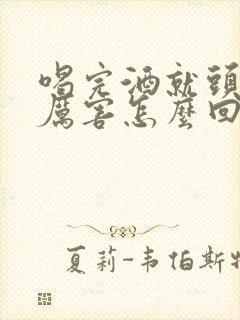 喝完酒就頭
厲害怎麼回
夏莉-韦伯斯特